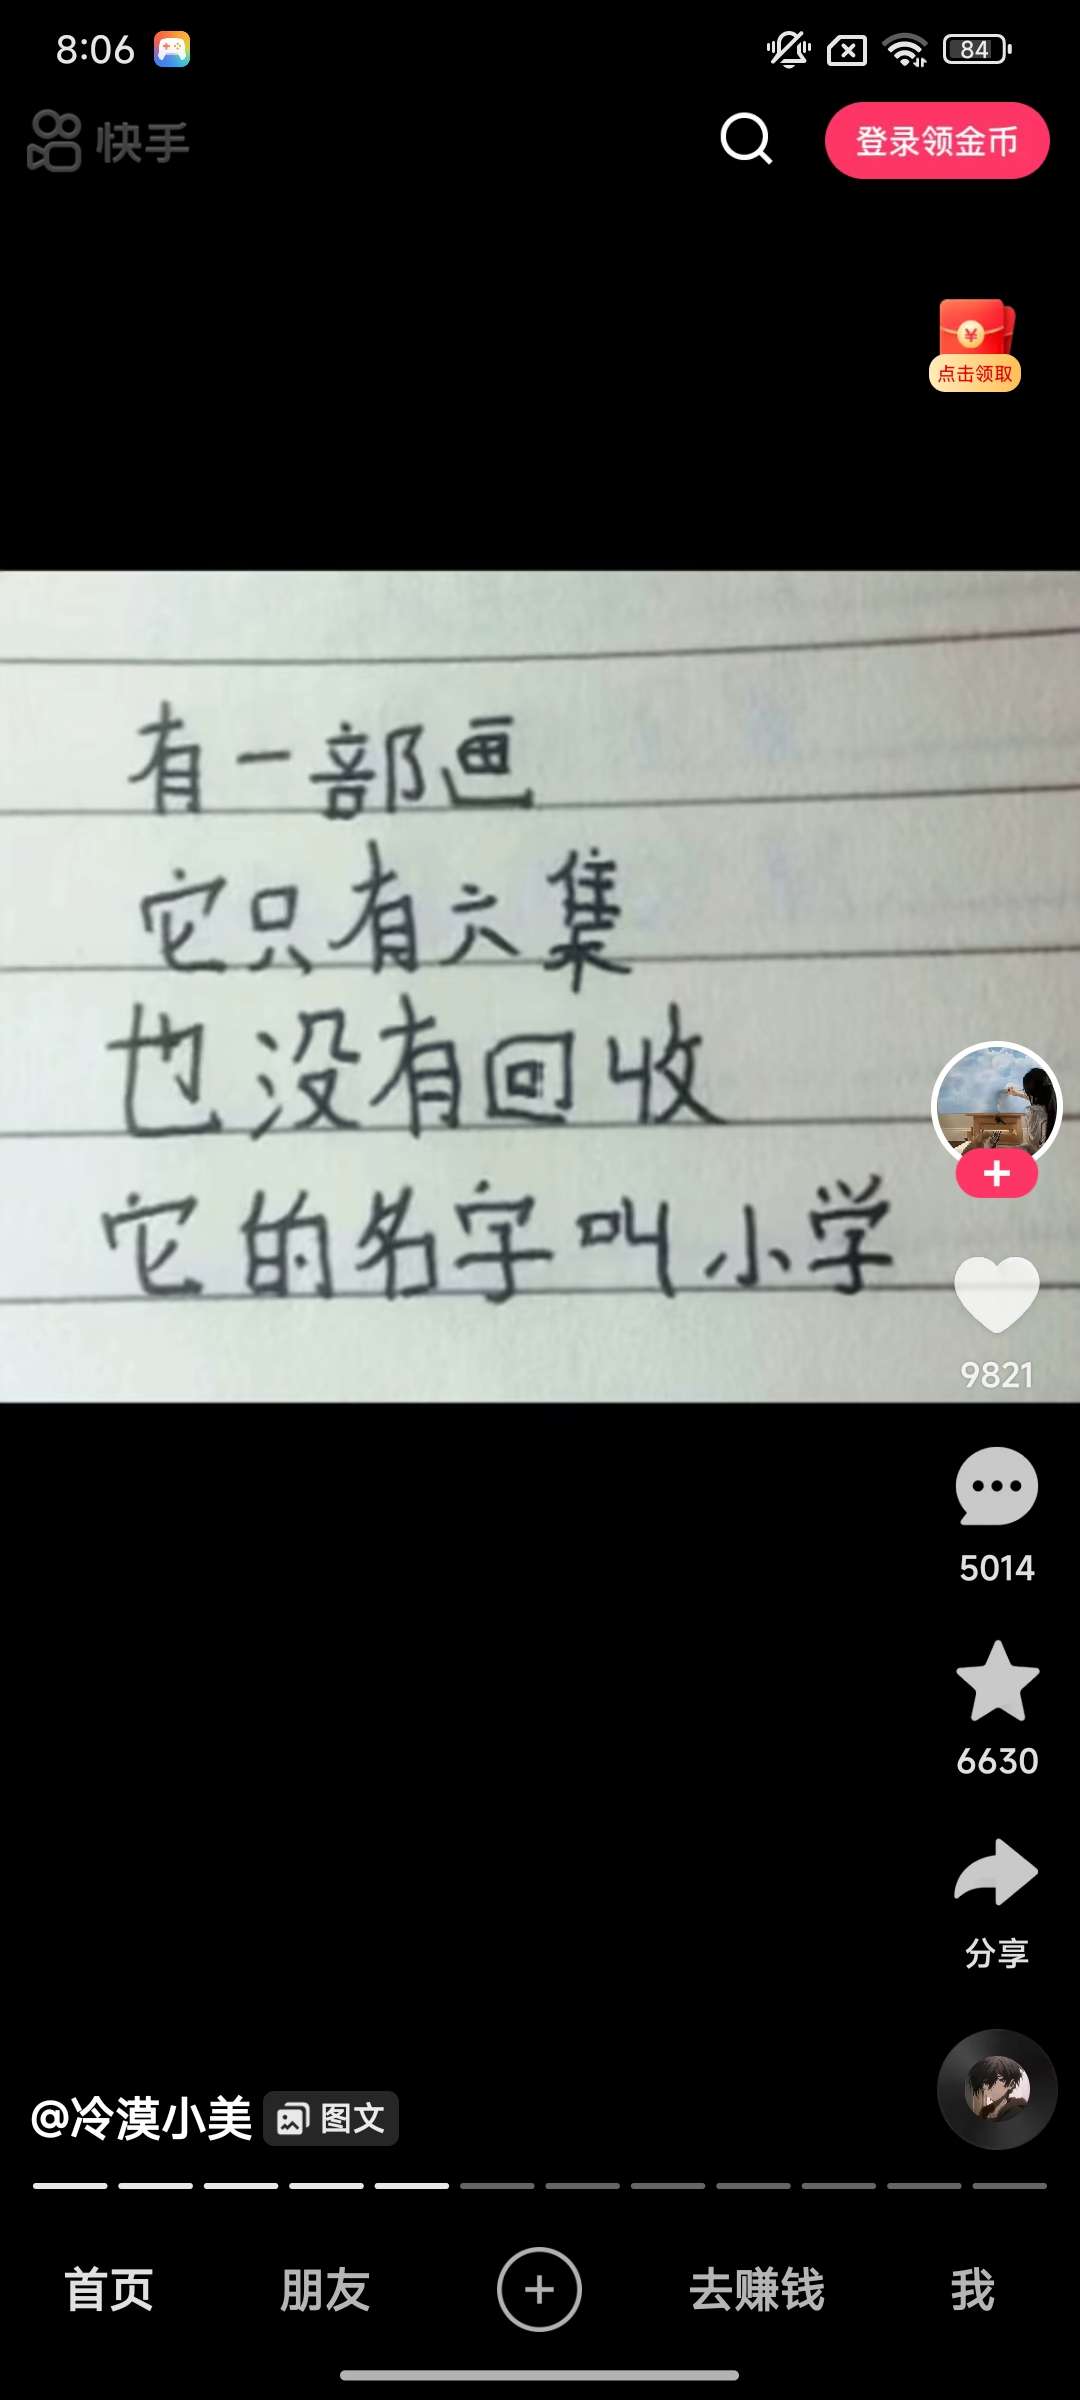 8:06
84
快手
登录领金币
点击领取
有一部画
它只有六集
也没有回收
它的名字叫小学
9821
5014
6630
分享
@冷漠小美
图文
首页
朋友
去赚钱
我